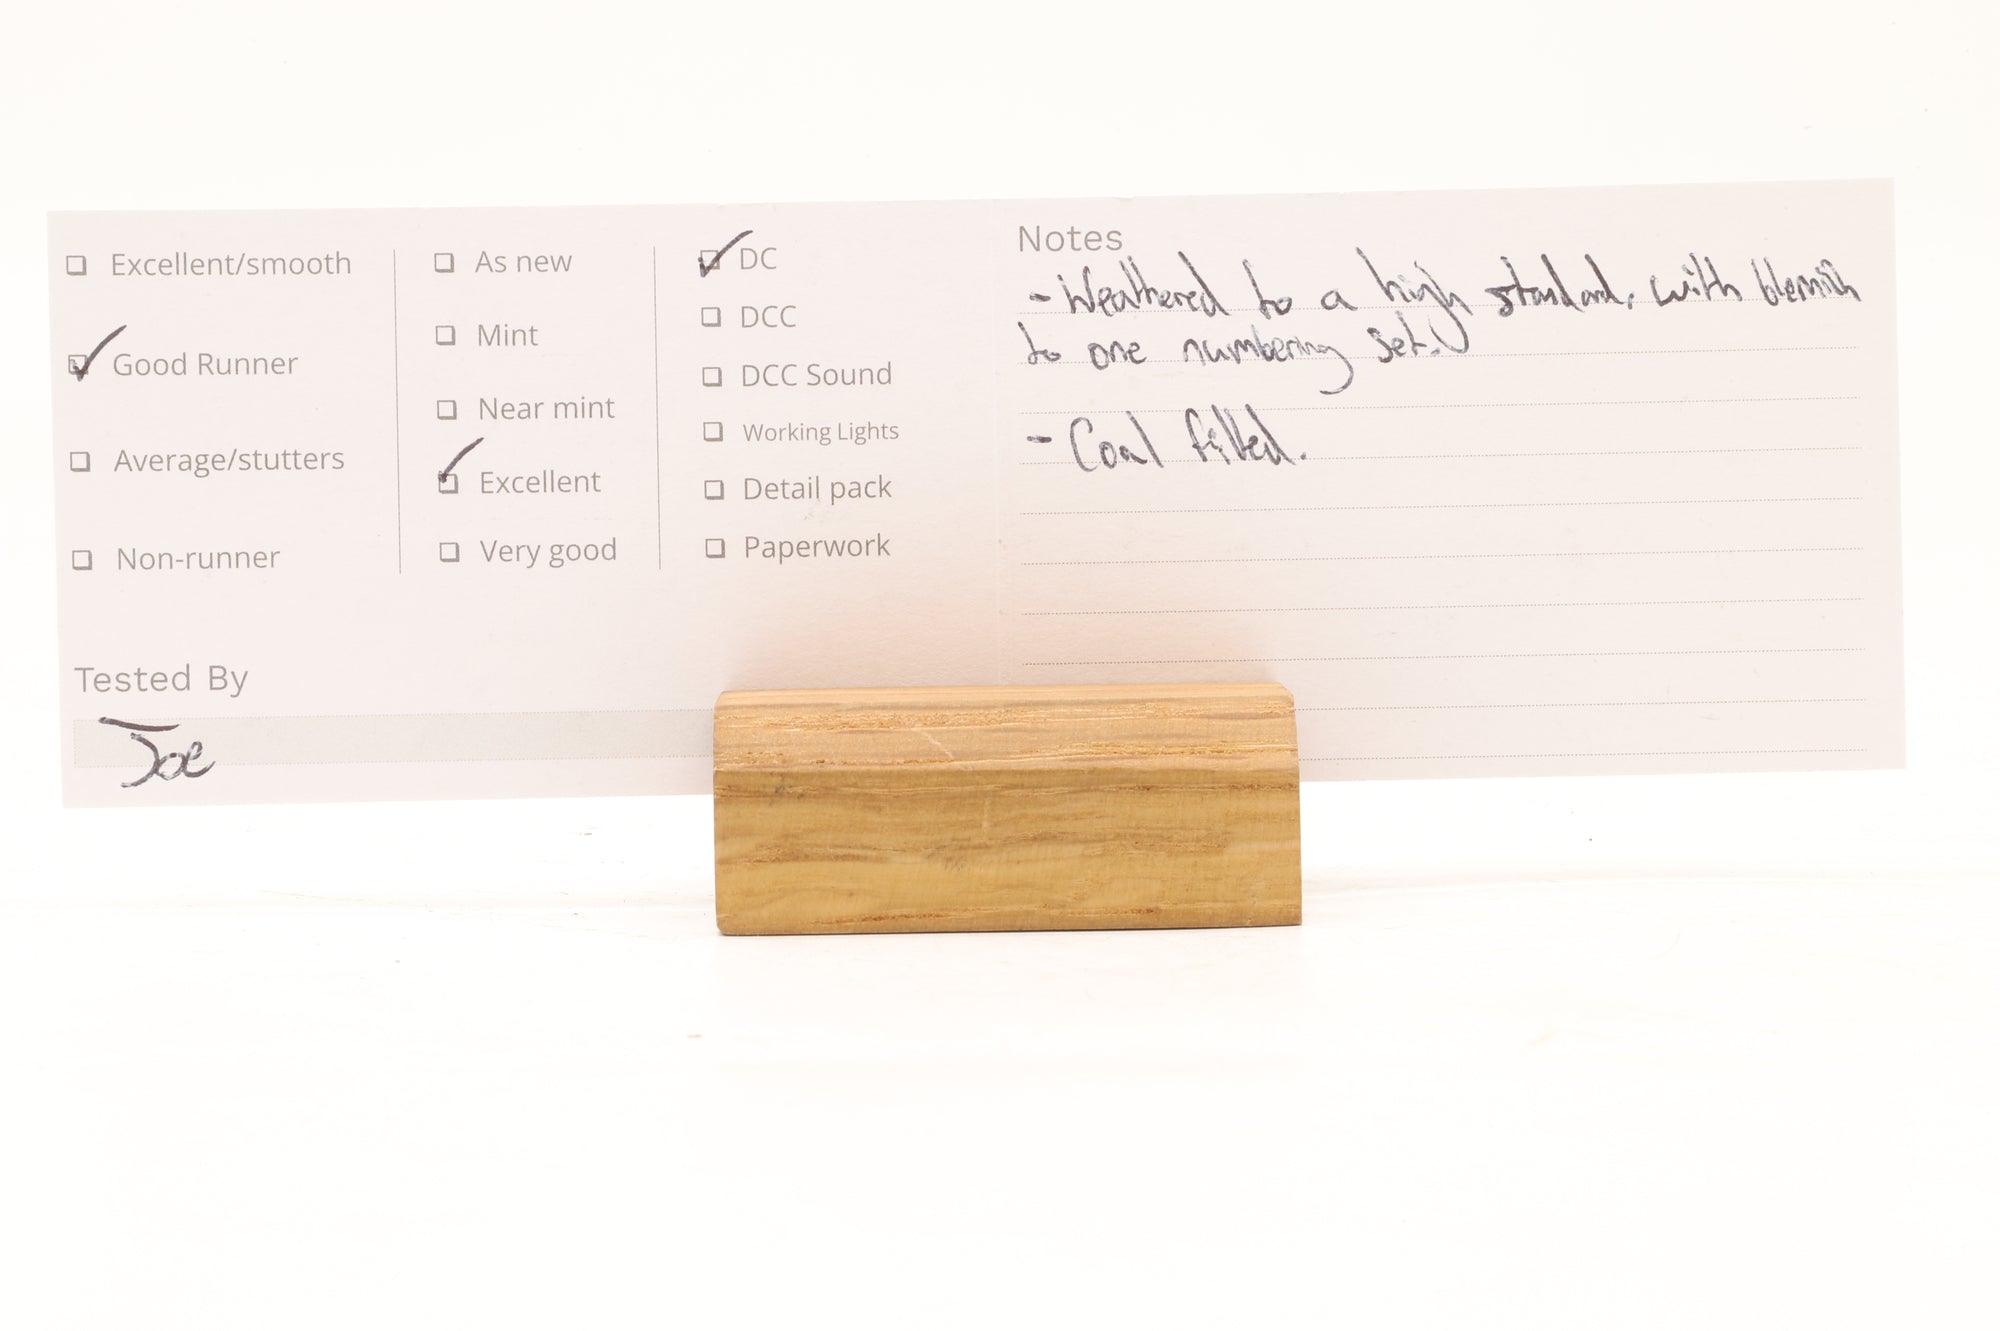 Excellent/smooth
Good Runner
Average/stutters
Non-runner
As new
Mint
Near mint
Excellent
Very good
DC
DCC
DCC Sound
Working Lights
Detail pack
Paperwork
Tested By
Joe
Notes
- Weathered to a high standard, with blemish
to one numbering set.
- Coal filled.